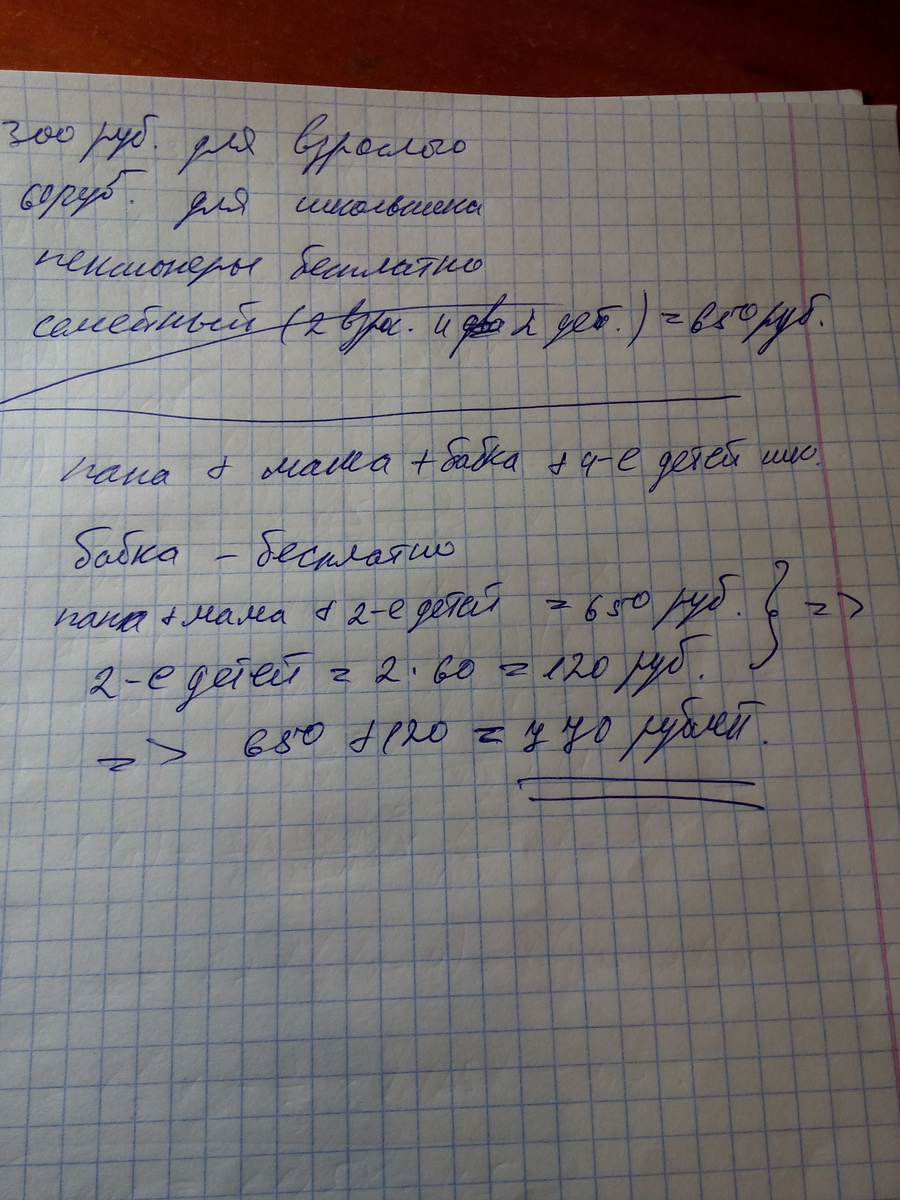 300 руб. для взрослого
60 руб. для школьника
пенсионеры бесплатно
семейный (2 взрс. и 2 дет.) = 650 руб.
папа + мама + бабка + 4-е детей шк.
бабка - бесплатно
папа + мама + 2-е детей = 650 руб. } =>
2-е детей = 2 · 60 = 120 руб.
=> 650 + 120 = 770 рублей.